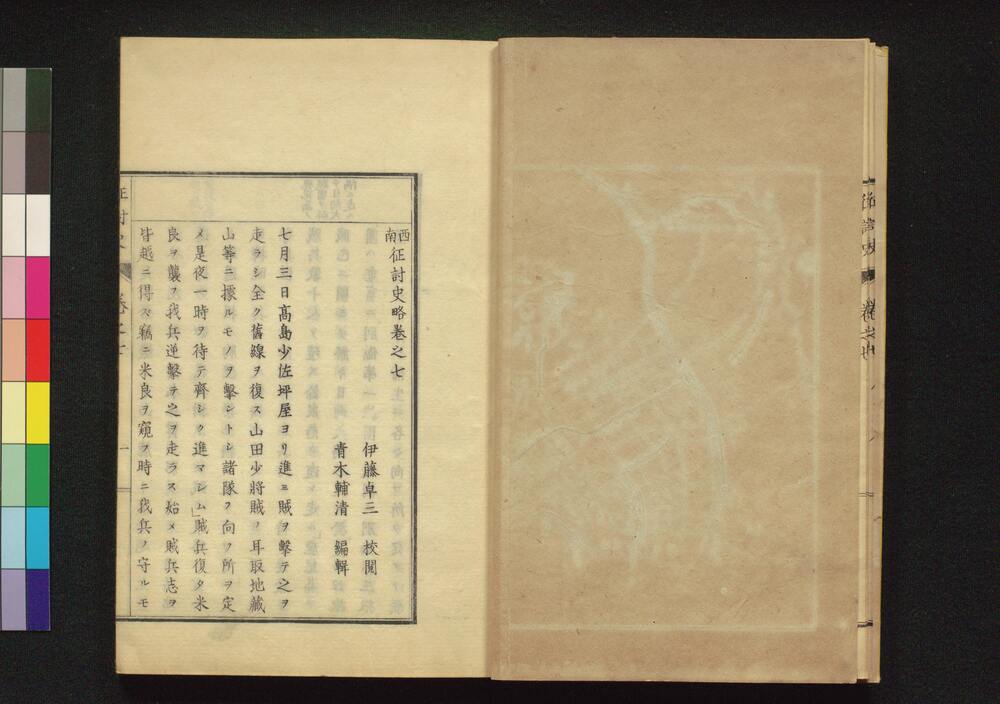 西南征討史略卷之七
伊藤卓三 校閲
青木輔清 編輯
七月三日高島少佐坪屋ヨリ進ミ賊ヲ擊テ之ヲ
走ラシ全ク舊線ヲ復ス山田少將賊ノ耳取地藏
山等ニ據ルモノヲ擊ントシ諸隊ヲ向フ所ヲ定
メ是夜一時ヲ待テ齊シク進マシム」賊兵復タ米
良ヲ襲フ我兵逆擊テ之ヲ走ラス始メ賊兵志ヲ
皆越ニ得ス竊ニ米良ヲ窺フ時ニ我兵ノ守ルモ
一